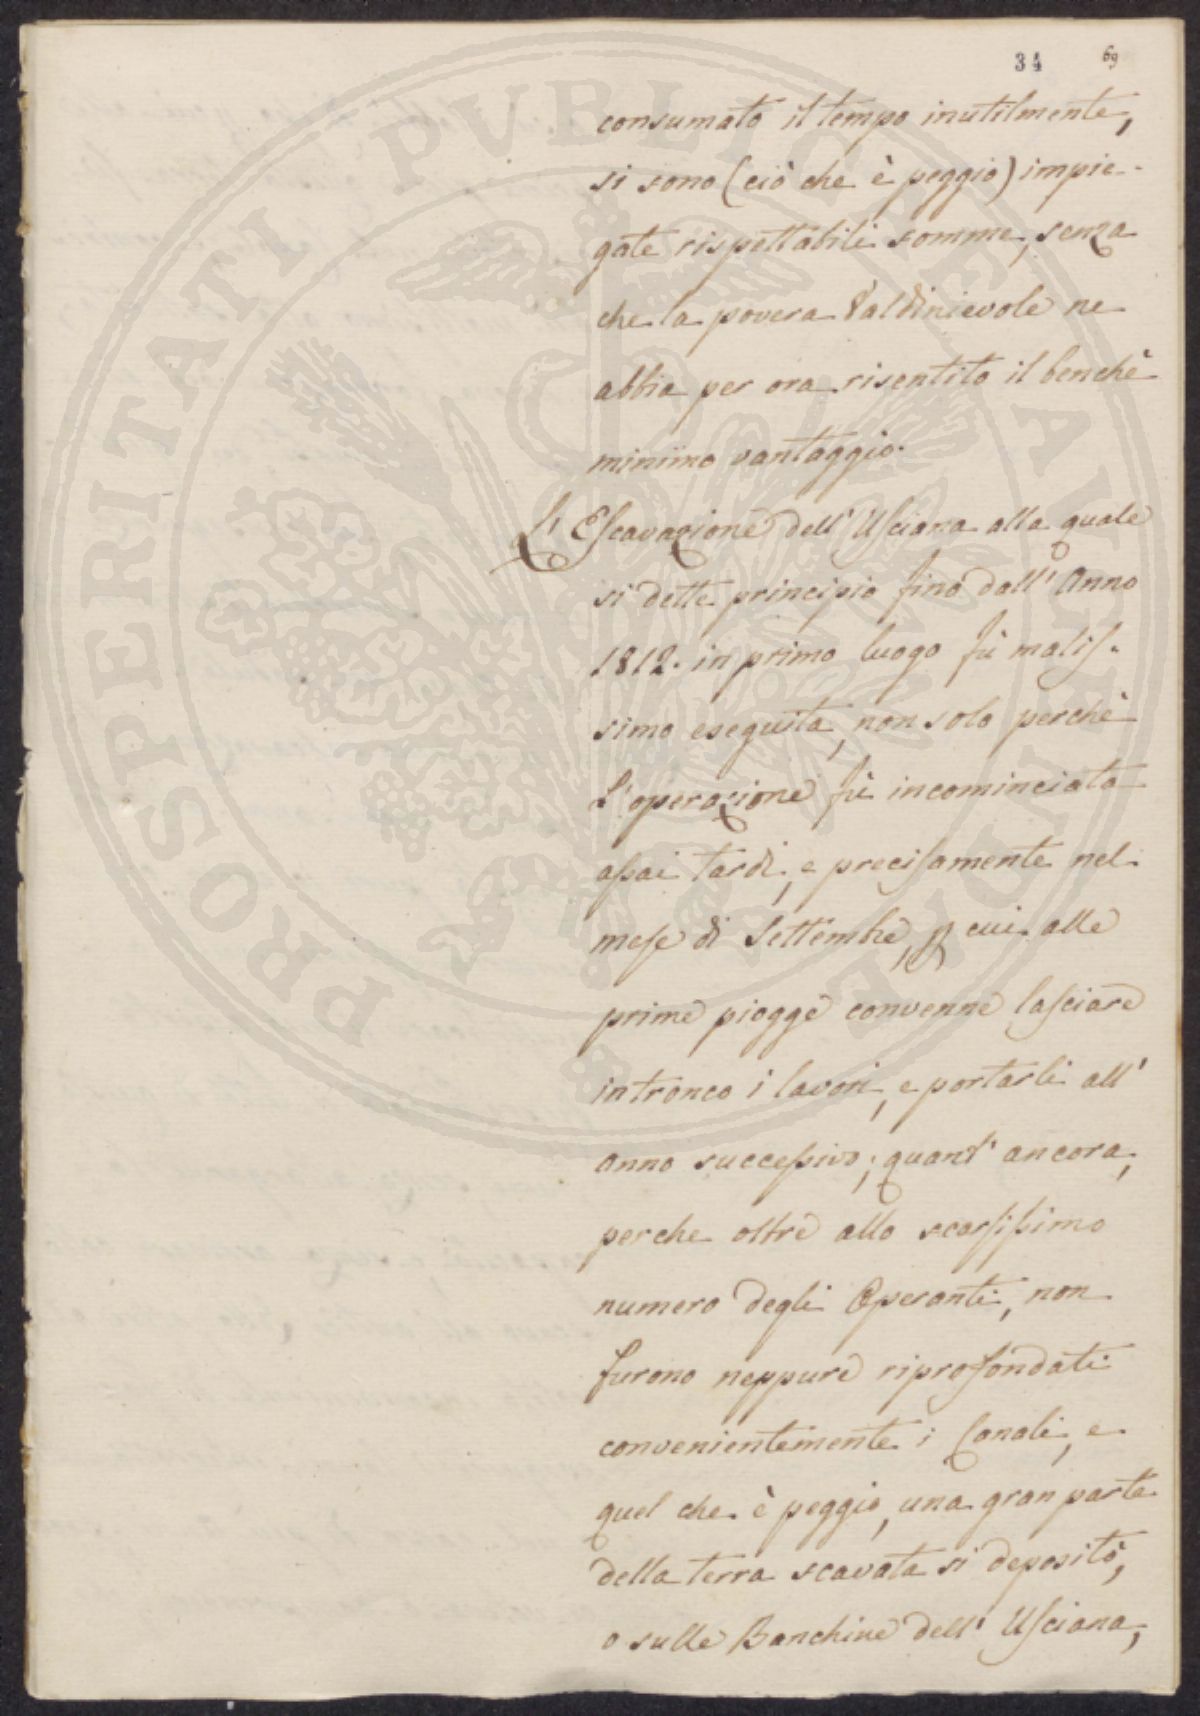 34 69
consumato il tempo inutilmente,
si sono (ciò che è peggio) impie-
gate rispettabili somme, senza
che la povera Valdinievole ne
abbia per ora risentito il benchè
minimo vantaggio.
L'Escavazione dell'Usciana alla quale
si dette principio fino dall'Anno
1812. in primo luogo fù malis-
simo eseguita, non solo perchè
L'operazione fù incominciata
assai tardi, e precisamente nel
mese di Settembre, p cui alle
prime piogge convenne lasciare
in tronco i lavori, e portarli all'
anno successivo; quant'ancora,
perche oltre allo scarsissimo
numero degli Operanti, non
furono neppure riprofondati
convenientemente i Canali, e
quel che è peggio, una gran parte
della terra scavata si depositò,
o sulle Banchine dell'Usciana,
PROSPERITATI PUBLICAE AUGENDAE